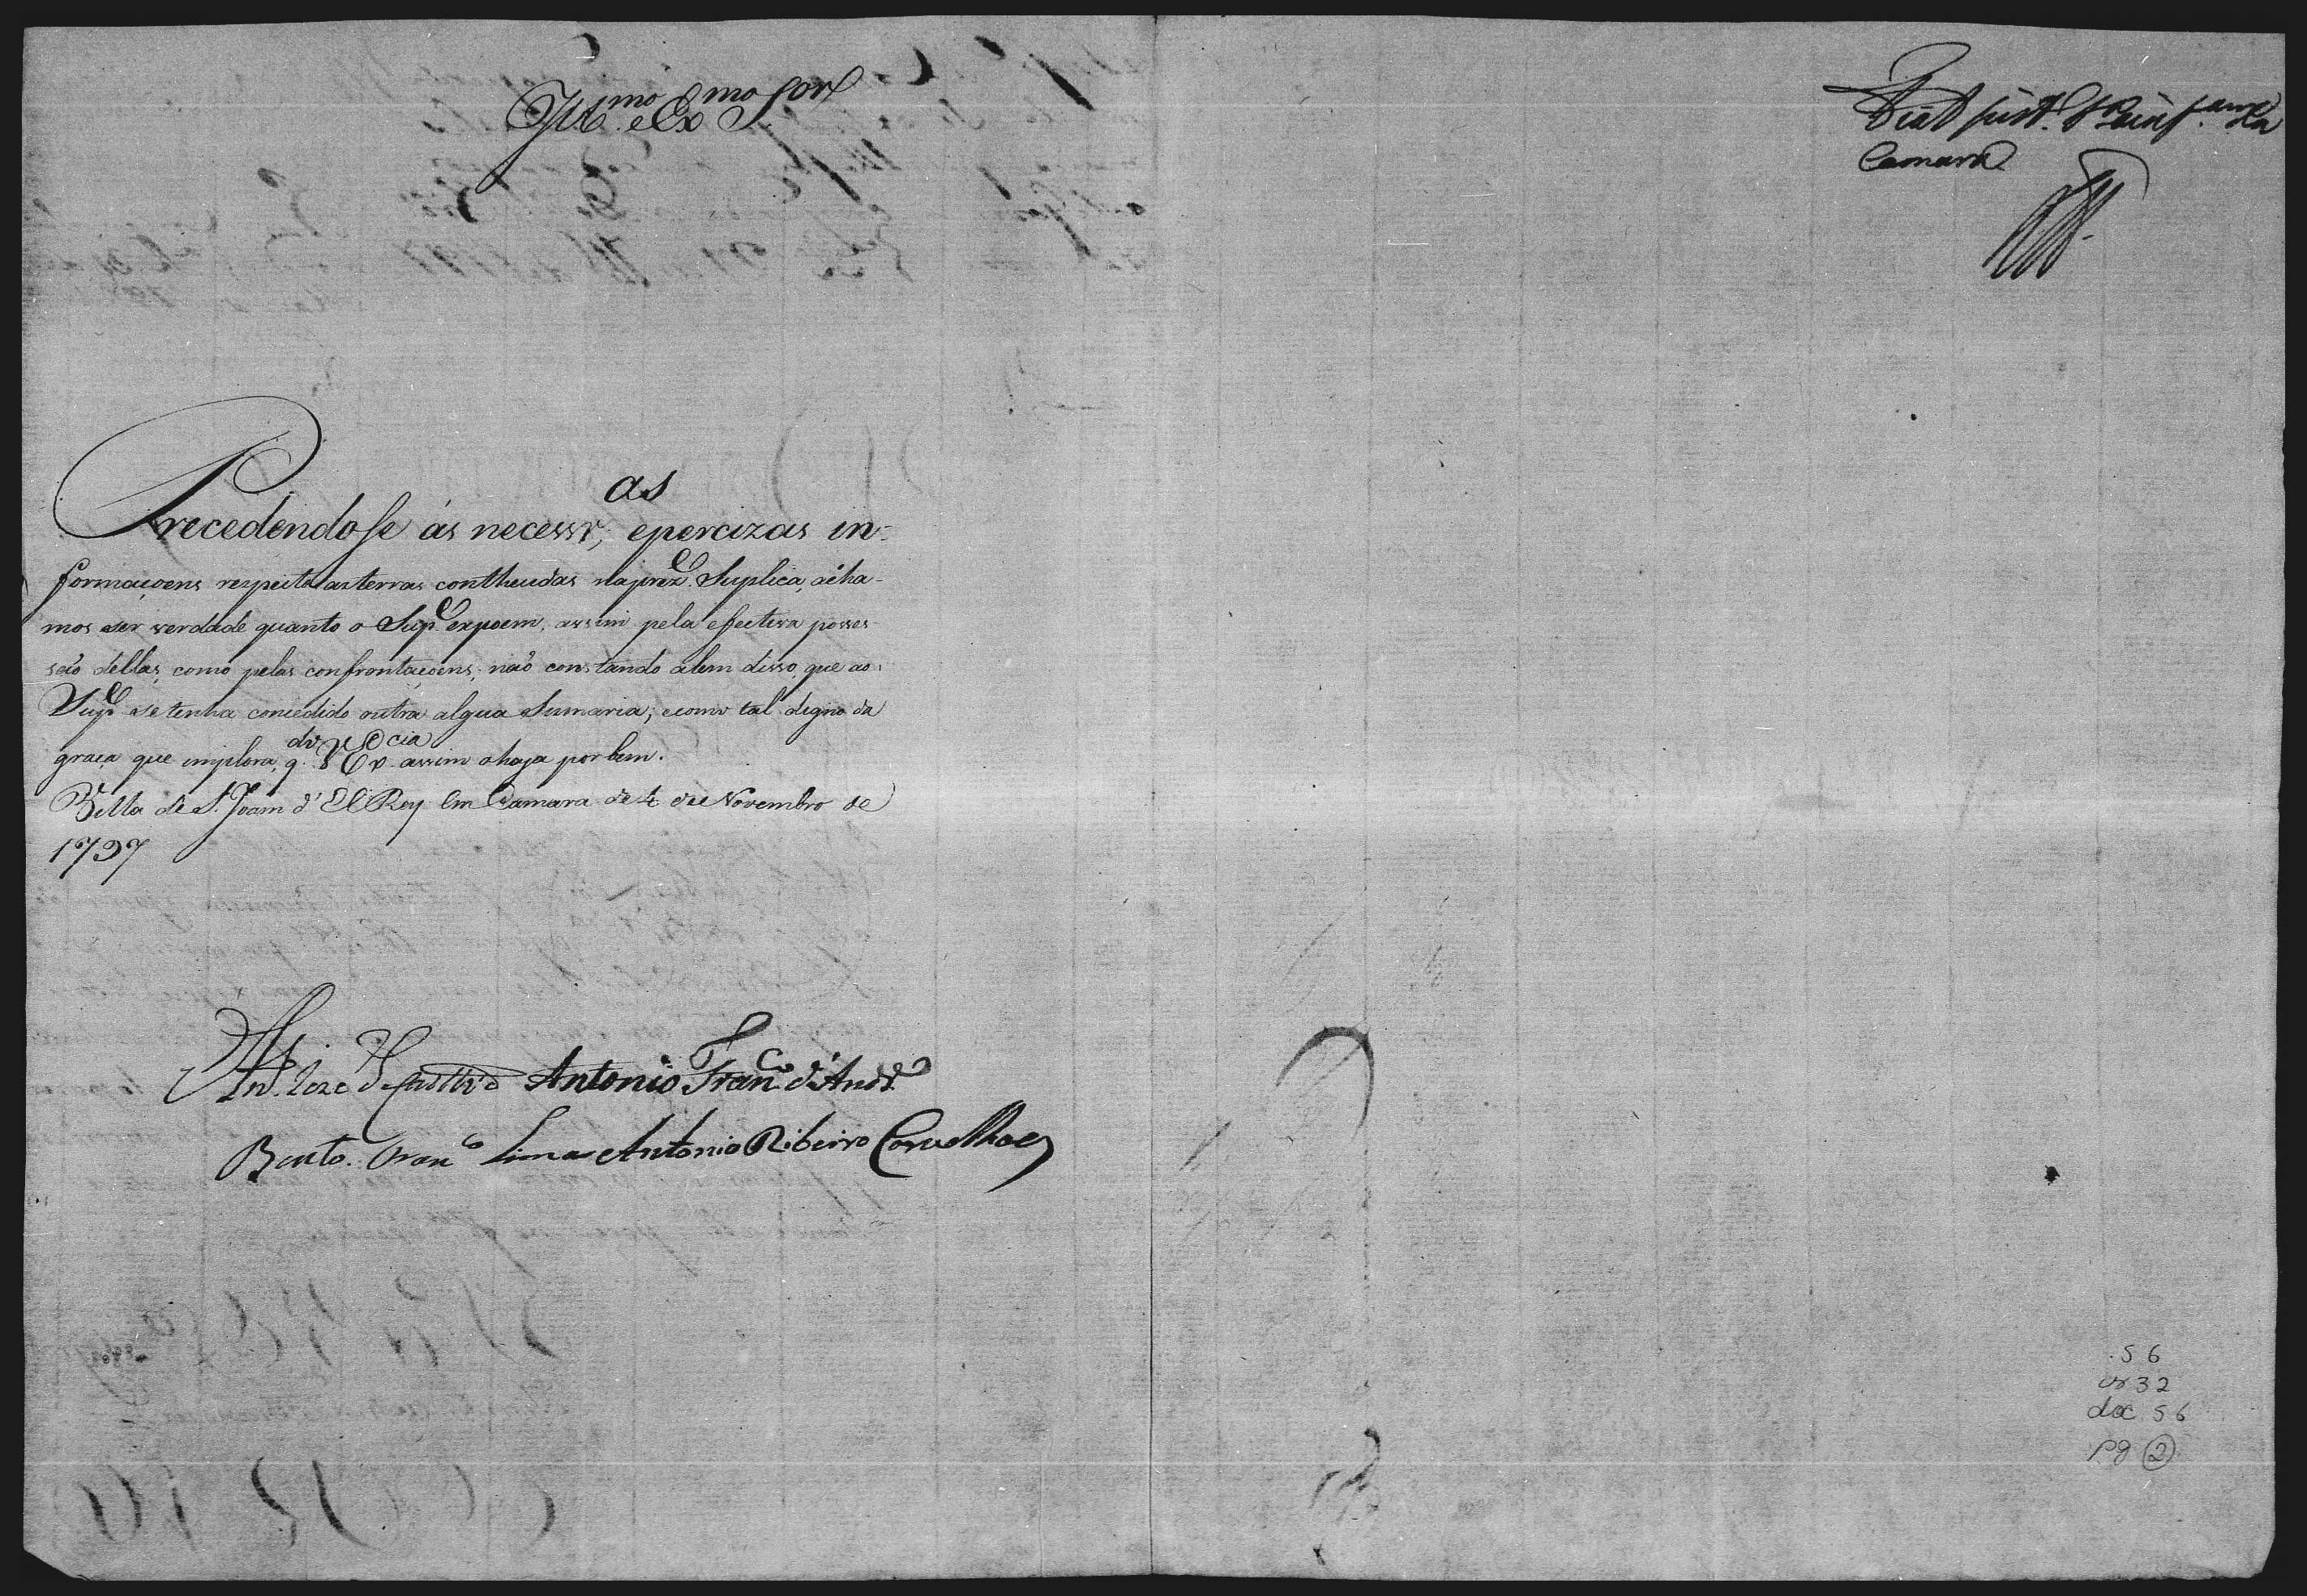 Illmo. e Exmo. Sor.
Precedendose ás necessras; epercizas in-
formaçoens respeito asterras contheudas naprezte. Suplica, acha-
mos aser verdade quanto o Supe. expoem, assim pela efectiva posses-
são dellas, como pelas confrontaçoens; não constando alem disso, que ao
Supe. se tenha concedido outra algua Sumaria; ecomo tal digno da
graça que implora, qdo. V Excia. assim ohaja porbem.
Villa de S. Joam d' El Rey Em Camara de 4 de Novembro de
1797
Antonio Franco. d'Andde.
Bento Franco Lima Antonio Ribeiro Carvalhaes
Camara
56
cx 32
doc 56
pg 2